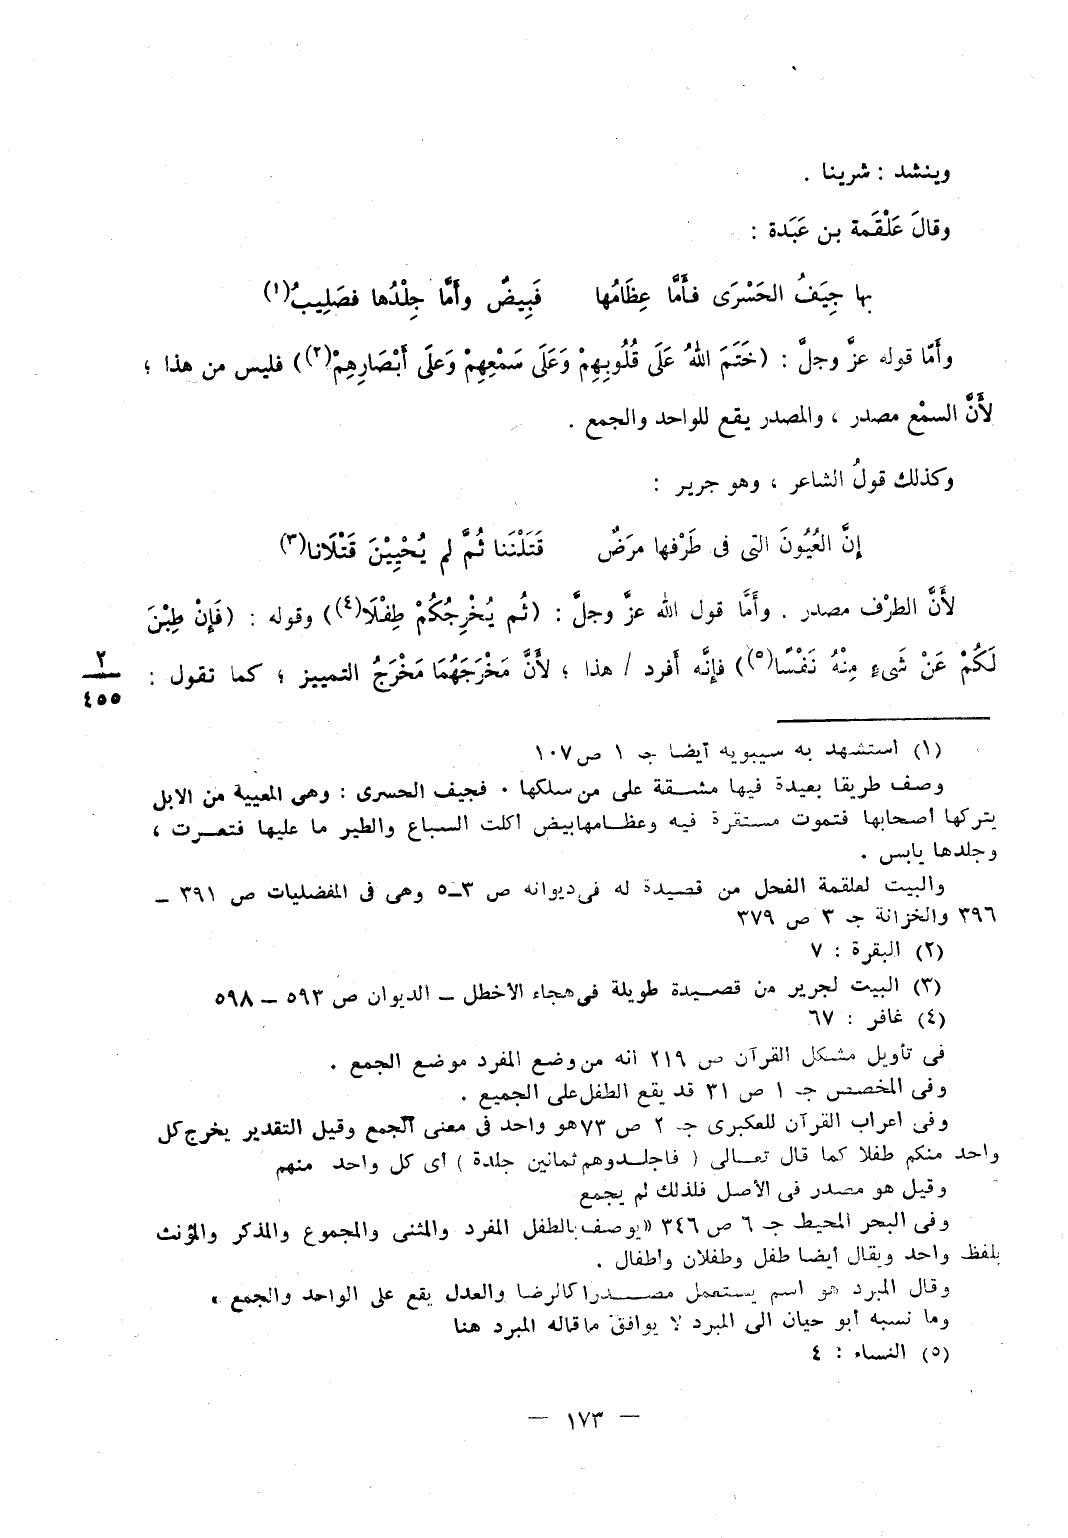 وينشد : شربنا .
وقالَ عَلْقَمة بن عَبَدة :
بها جِيَفُ الحَسْرَى فأَمَّا عِظَامُها فَبِيضٌ وأَمَّا جِلْدُها فصَلِيبُ(١)
وأَمّا قوله عزَّ وجلَّ : (خَتَمَ اللهُ عَلَى قُلُوبِهِمْ وَعَلَى سَمْعِهِمْ وَعَلَى أَبْصَارِهِمْ(٢)) فليس من هذا ؛
لأَنَّ السمْع مصدر ، والمصدر يقع للواحد والجمع .
وكذلك قولُ الشاعر ، وهو جرير :
إِنَّ العُيُونَ التى فى طَرْفها مرَضٌ قَتَلْنَنا ثُمَّ لم يُحْيِيْنَ قَتْلَانا(٣)
لأَنَّ الطرْف مصدر . وأَمَّا قول الله عزَّ وجلَّ : (ثُم يُخْرِجُكُمْ طِفْلَا(٤)) وقوله : (فَإِنْ طِبْنَ
لَكُمْ عَنْ شَىءٍ مِنْهُ نَفْسًا(٥)) فإِنَّه أَفرد / هذا ؛ لأَنَّ مَخْرَجَهُمَا مَخْرَجُ التمييز ؛ كما تقول :
٢
٤٥٥
(١) استشهد به سيبويه أيضا جـ ١ ص١٠٧
وصف طريقا بعيدة فيها مشقة على من سلكها . فجيف الحسرى : وهى المعيية من الابل
يتركها أصحابها فتموت مستقرة فيه وعظامها بيض أكلت السباع والطير ما عليها فتعرت ،
وجلدها يابس .
والبيت لعلقمة الفحل من قصيدة له فى ديوانه ص ٣ـ٥ وهى فى المفضليات ص ٣٩١ ـ
٣٩٦ والخزانة جـ ٣ ص ٣٧٩
(٢) البقرة : ٧
(٣) البيت لجرير من قصيدة طويلة فى هجاء الأخطل ـ الديوان ص ٥٩٣ ـ ٥٩٨
(٤) غافر : ٦٧
فى تأويل مشكل القرآن ص ٢١٩ انه من وضع المفرد موضع الجمع .
وفى المخصص جـ ١ ص ٣١ قد يقع الطفل على الجميع .
وفى اعراب القرآن للعكبرى جـ ٢ ص ٧٣ هو واحد فى معنى الجمع وقيل التقدير يخرج كل
واحد منكم طفلا كما قال تعالى ( فاجلدوهم ثمانين جلدة ) أى كل واحد منهم
وقيل هو مصدر فى الأصل فلذلك لم يجمع
وفى البحر المحيط جـ ٦ ص ٣٤٦ «يوصف بالطفل المفرد والمثنى والمجموع والمذكر والمؤنث
بلفظ واحد ويقال أيضا طفل وطفلان وأطفال .
وقال المبرد هو اسم يستعمل مصدرا كالرضا والعدل يقع على الواحد والجمع »
وما نسبه أبو حيان الى المبرد لا يوافق ما قاله المبرد هنا
(٥) النساء : ٤
— ١٧٣ —